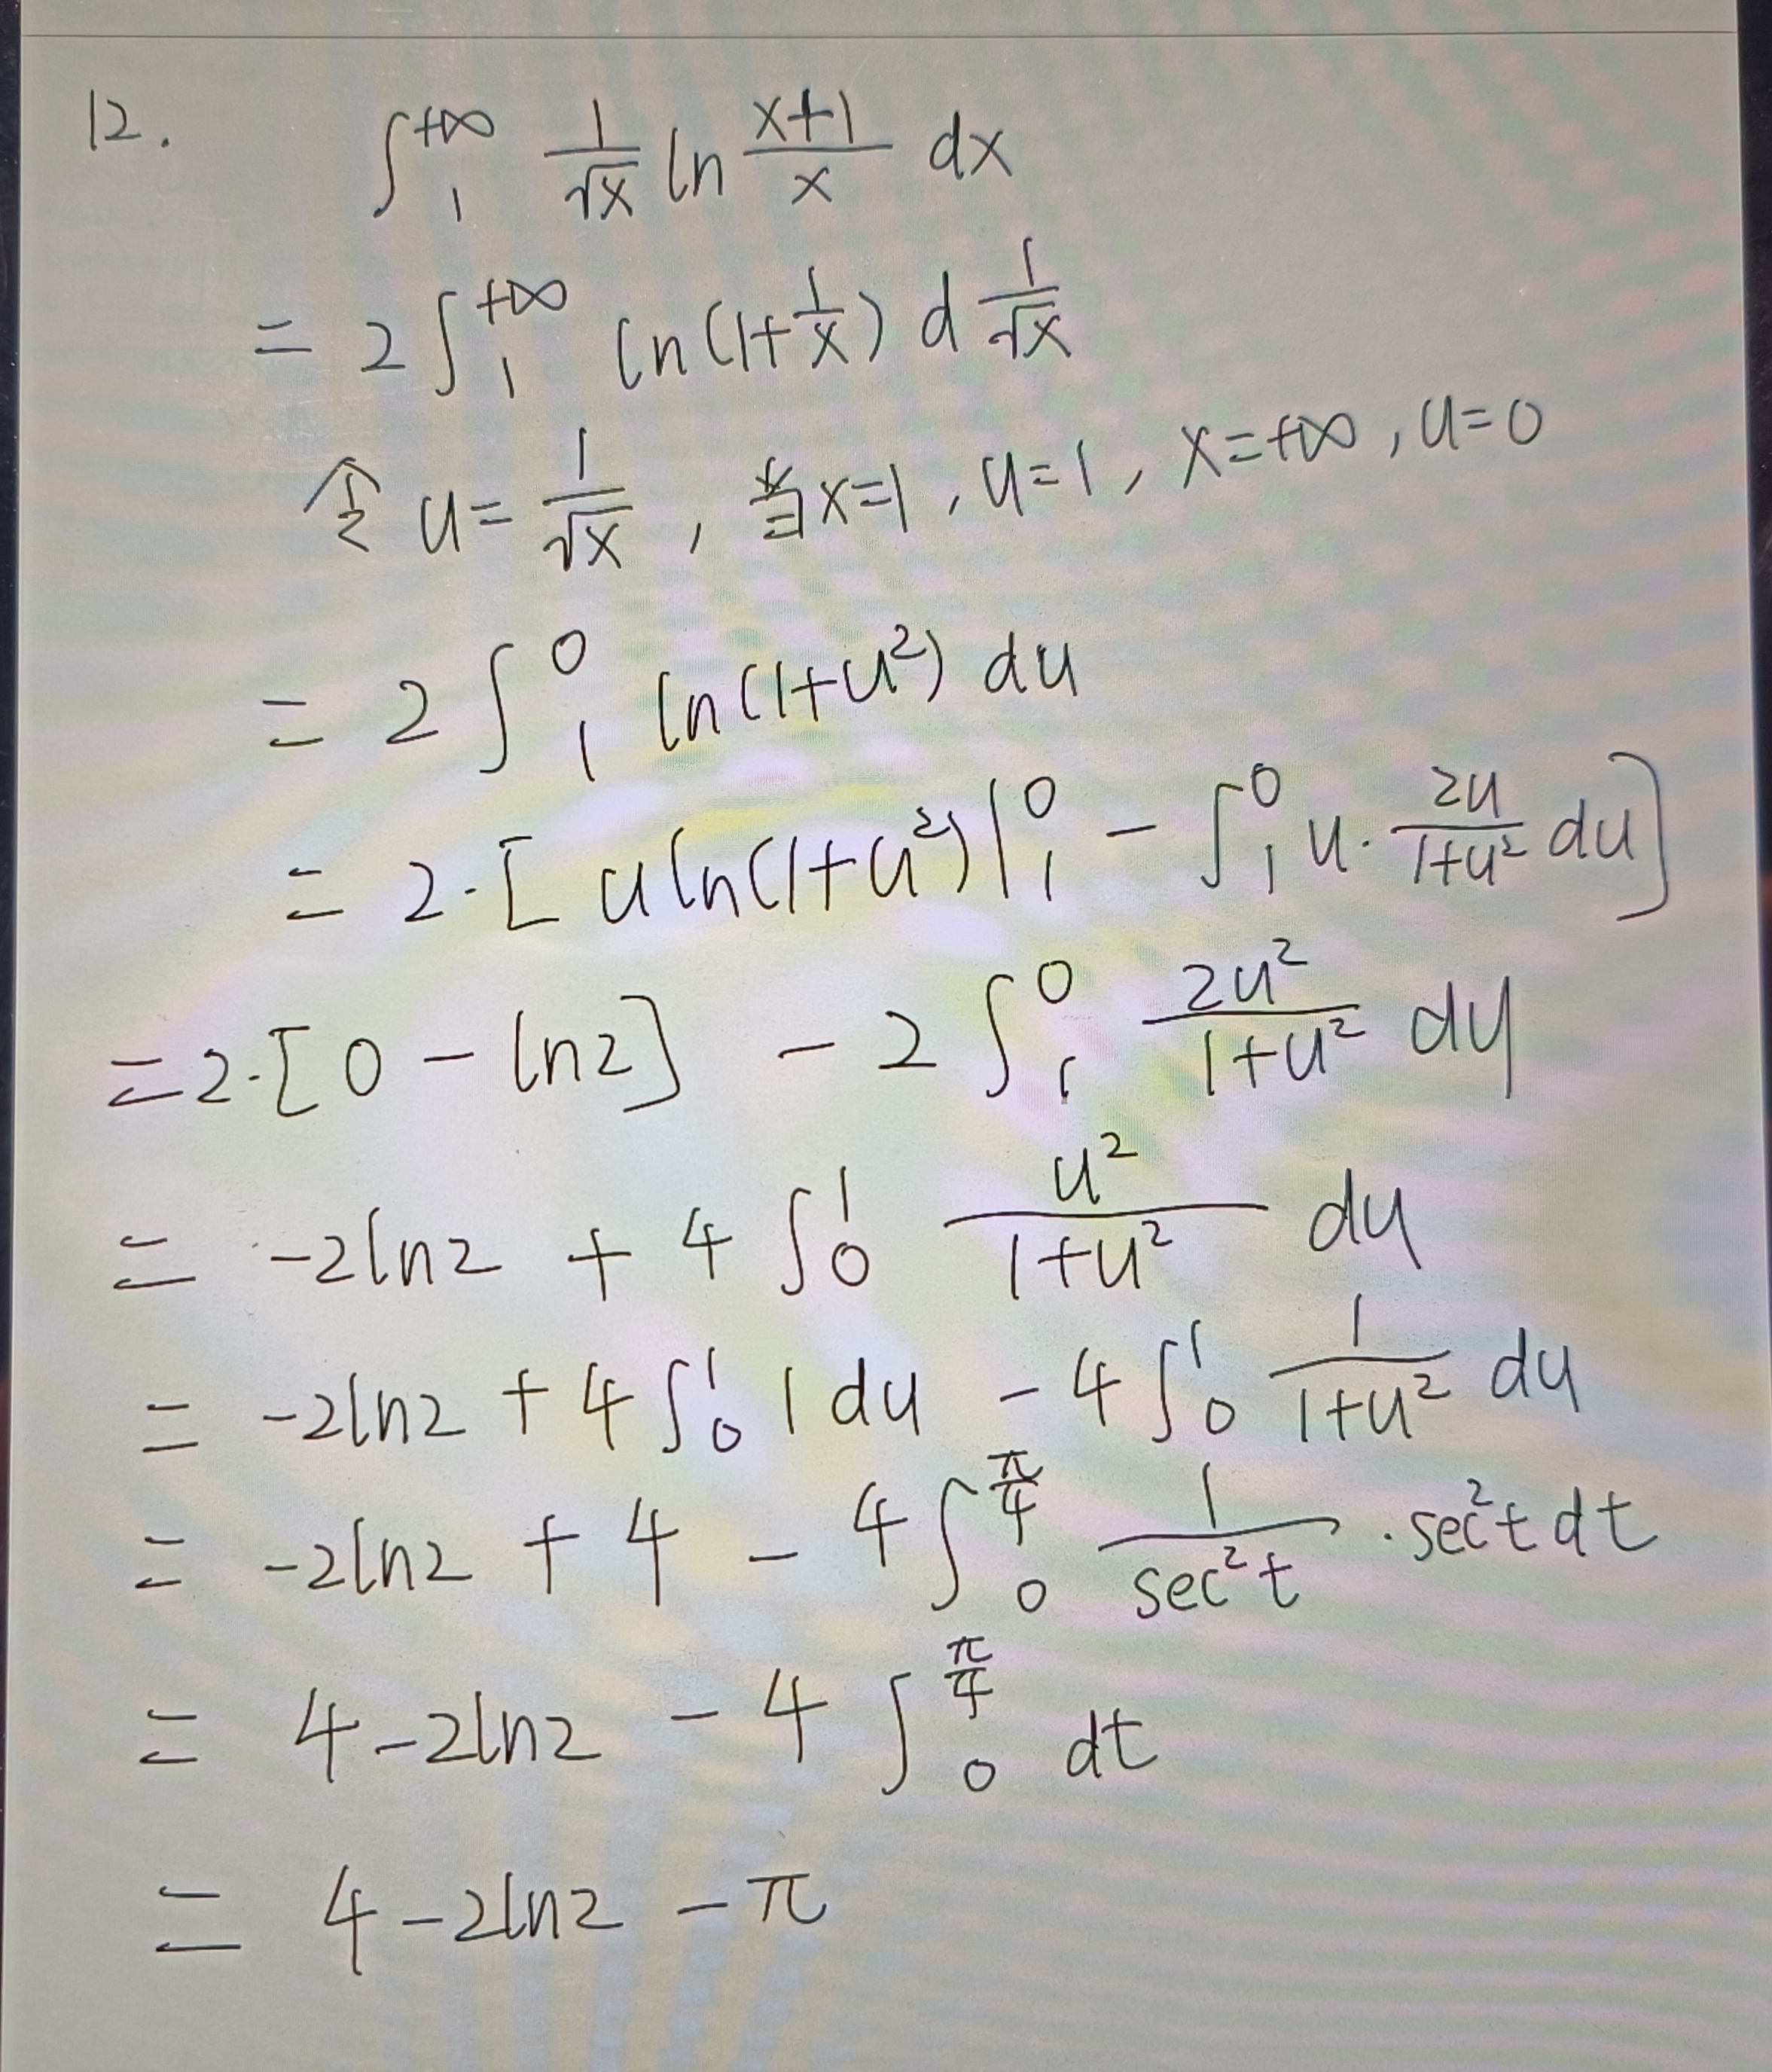 12. ∫₁^{+∞} \frac{1}{\sqrt{x}} ln \frac{x+1}{x} dx
= 2∫₁^{+∞} ln(1+\frac{1}{x}) d\frac{1}{\sqrt{x}}
令 u = \frac{1}{\sqrt{x}}, 当x=1, u=1, x=+∞, u=0
= 2∫₁^0 ln(1+u²) du
= 2·[u ln(1+u²)|₁^0 - ∫₁^0 u·\frac{2u}{1+u²} du]
= 2·[0 - ln2] - 2∫₁^0 \frac{2u²}{1+u²} du
= -2ln2 + 4∫₀^1 \frac{u²}{1+u²} du
= -2ln2 + 4∫₀^1 1 du - 4∫₀^1 \frac{1}{1+u²} du
= -2ln2 + 4 - 4∫₀^{\frac{π}{4}} \frac{1}{sec²t}·sec²t dt
= 4-2ln2 - 4∫₀^{\frac{π}{4}} dt
= 4-2ln2 - π